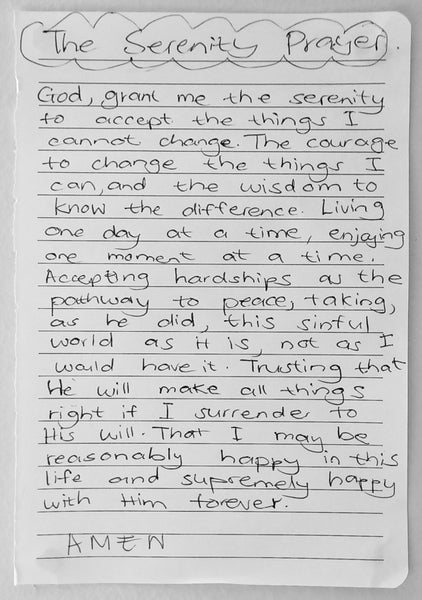 The Serenity Prayer.
God, grant me the serenity
to accept the things I
cannot change. The courage
to change the things I
can, and the wisdom to
know the difference. Living
one day at a time, enjoying
one moment at a time.
Accepting hardships as the
pathway to peace, taking,
as he did, this sinful
world as it is, not as I
would have it. Trusting that
He will make all things
right if I surrender to
His will. That I may be
reasonably happy in this
life and supremely happy
with Him forever.
AMEN